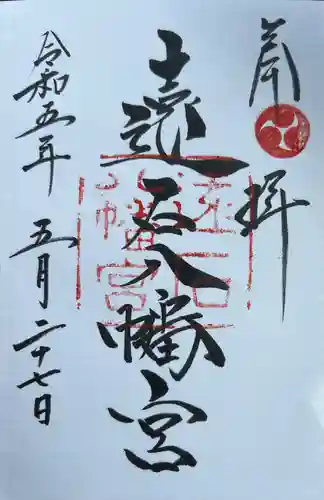 奉拝
遠石八幡宮
遠石
八幡宮
令和五年 五月二十七日